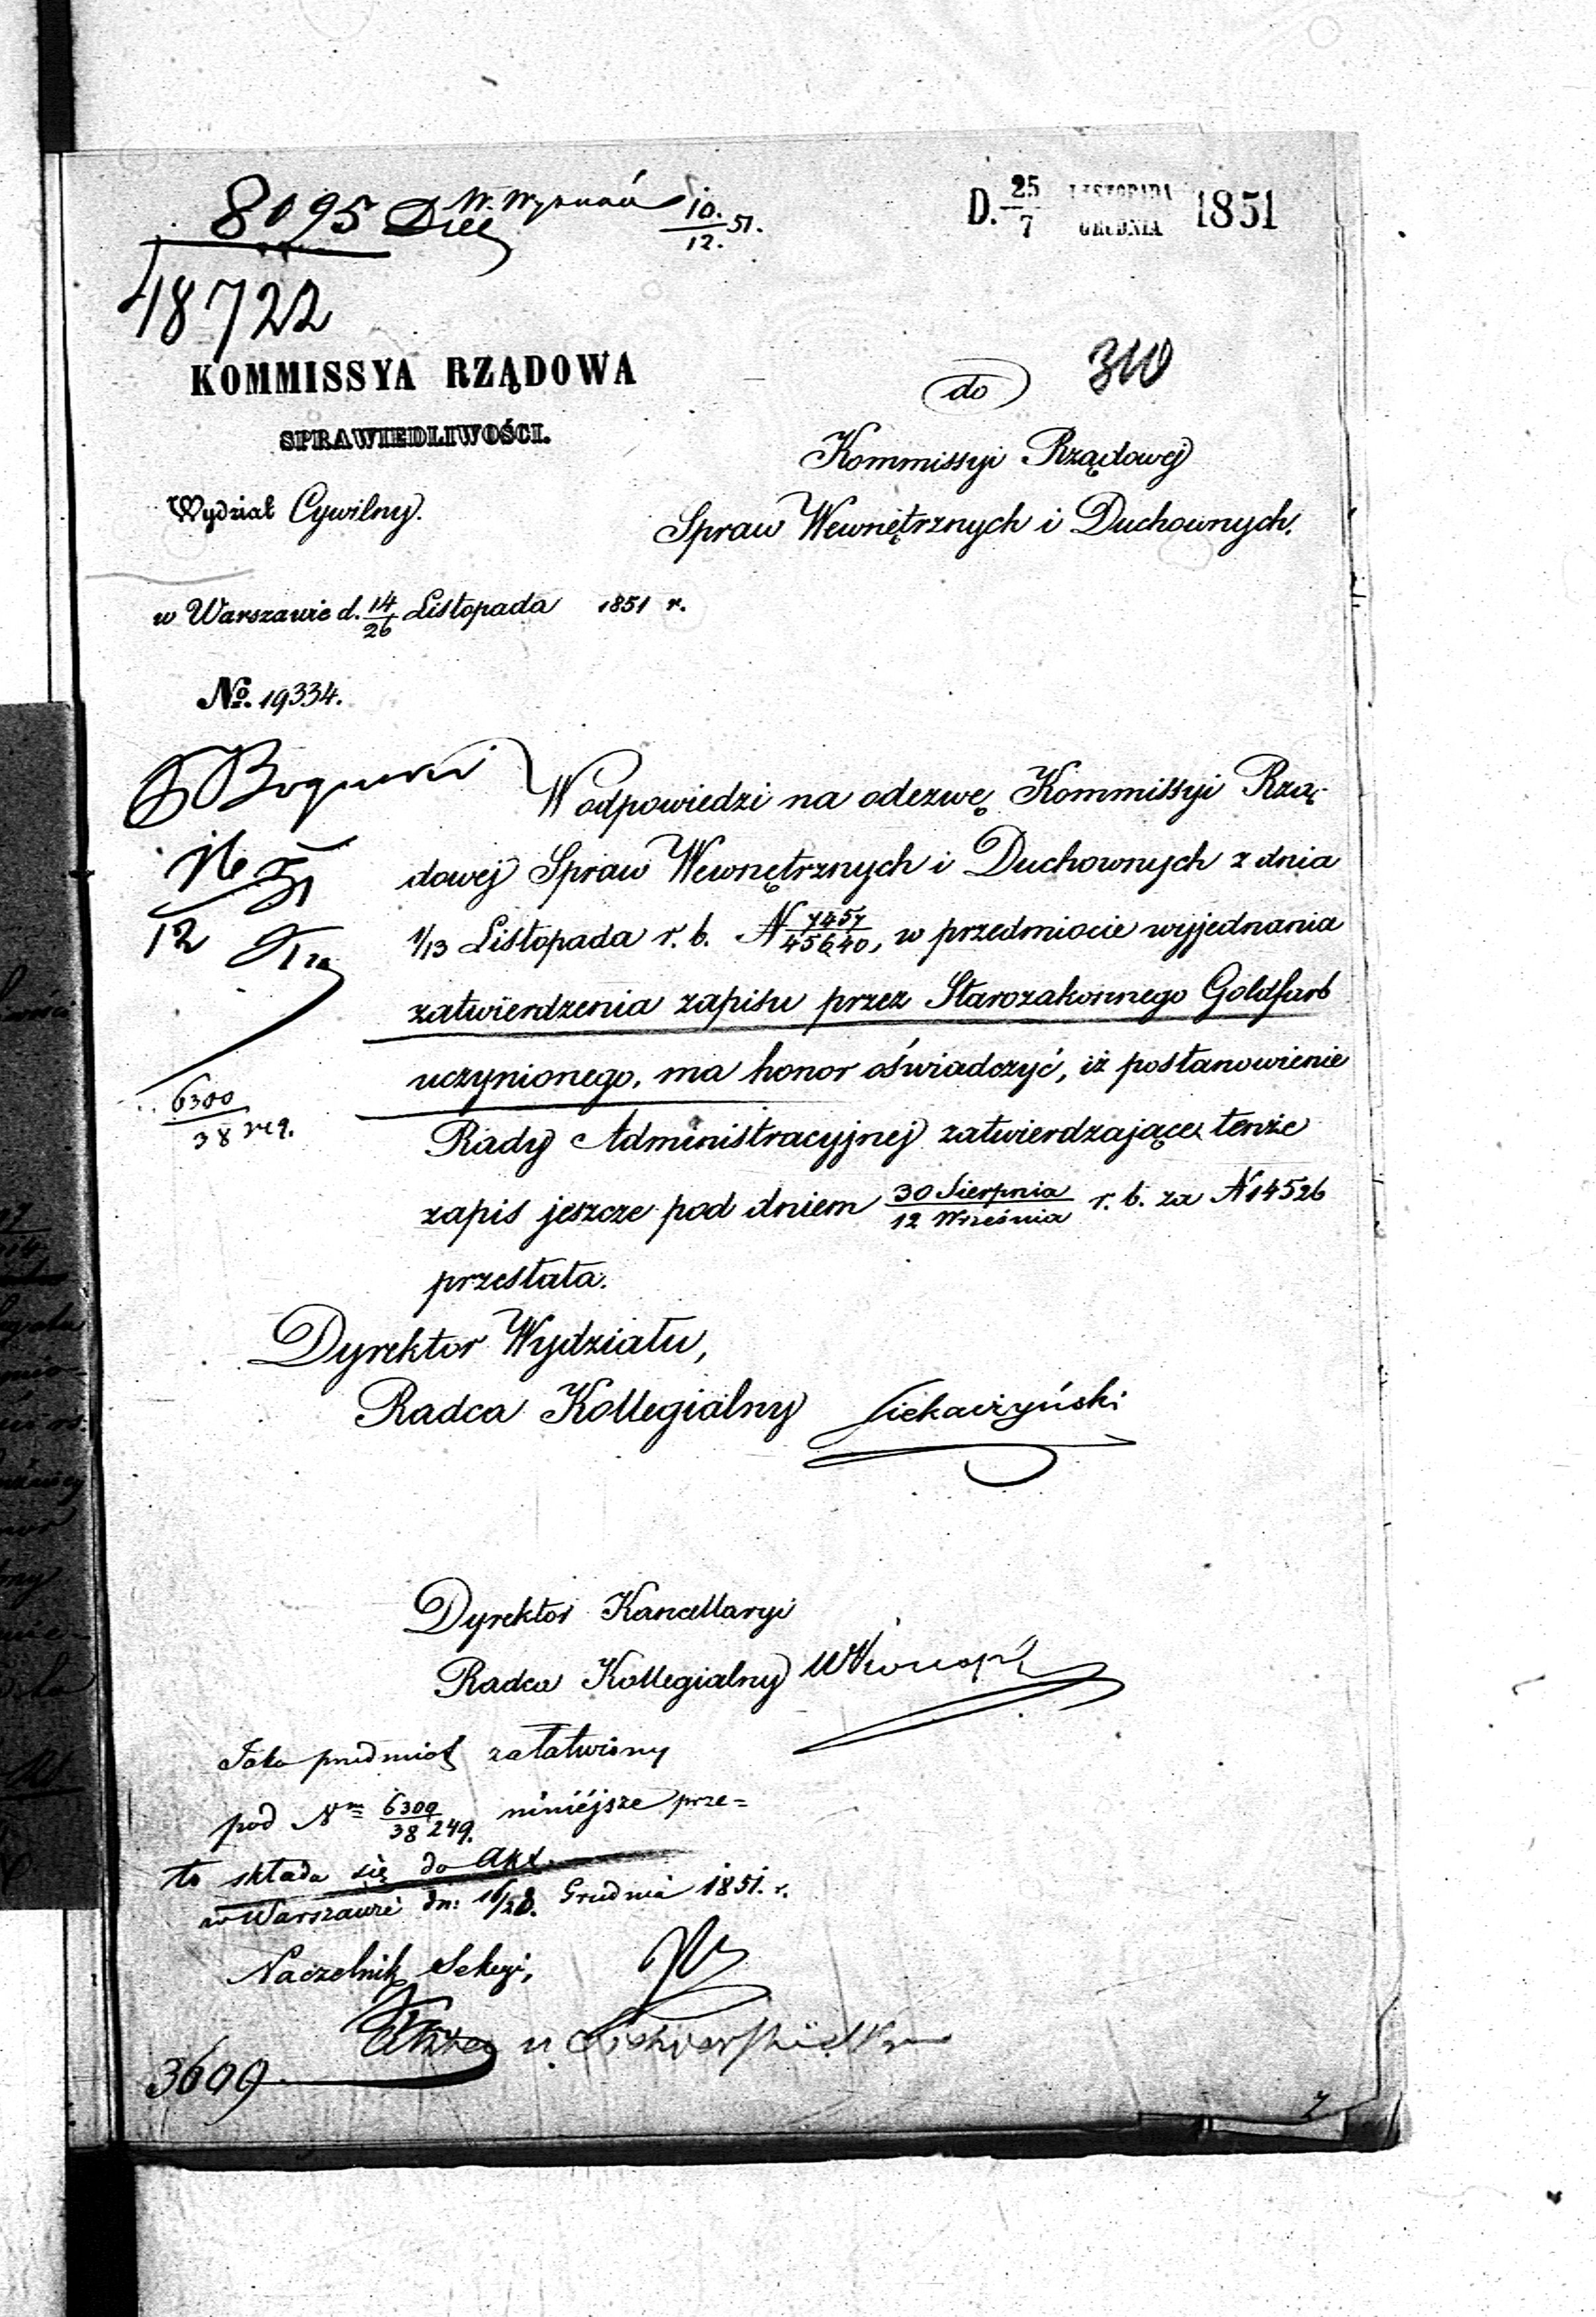 8095
W. Wyznań 10./12. 51.
D. 25/7 LISTOPADA/GRUDNIA 1851
48722
310
KOMMISSYA RZĄDOWA
SPRAWIEDLIWOŚCI.
do
Kommissyi Rządowej
Spraw Wewnętrznych i Duchownych.
Wydział Cywilny.
w Warszawie d. 14/26 Listopada 1851 r.
No. 19334.
W odpowiedzi na odezwę Kommissyi Rzą-
dowej Spraw Wewnętrznych i Duchownych z dnia
1/13 Listopada r. b. N 7457/45640, w przedmiocie wyjednania
zatwierdzenia zapisu przez Starozakonnego Goldfarb
uczynionego, ma honor oświadczyć, iż postanowienie
Rady Administracyjnej zatwierdzające tenże
zapis jeszcze pod dniem 30 Sierpnia/12 Września r. b. za N 14526
przesłała.
16/12 51
6300/38249.
Dyrektor Wydziału,
Radca Kollegialny
Dyrektor Kancellaryi
Radca Kollegialny
Jako przedmiot załatwiony
pod Nm 6309/38249. niniejsze prze=
to składa się do Akt.
w Warszawie dn: 16/28. Grudnia 1851. r.
Naczelnik Sekcyi,
3609